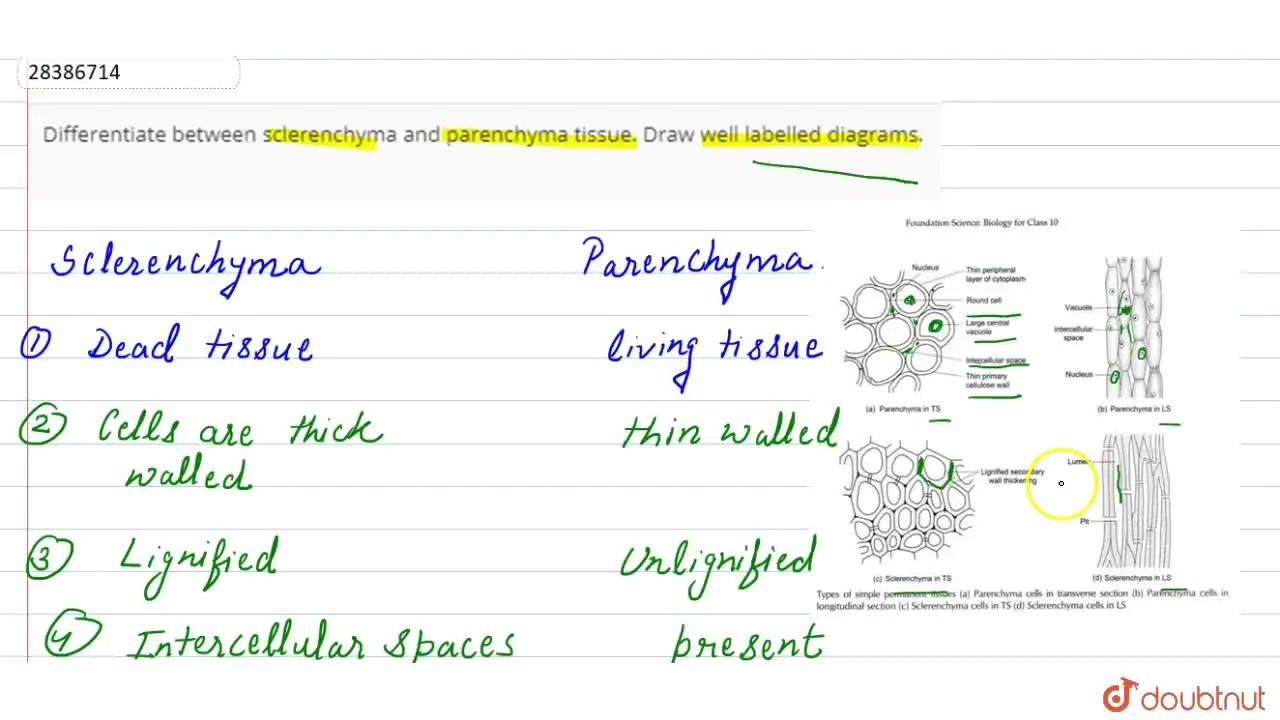 28386714
Differentiate between sclerenchyma and parenchyma tissue. Draw well labelled diagrams.
Foundation Science: Biology for Class 10
Sclerenchyma
Parenchyma.
① Dead tissue
living tissue
② Cells are thick
walled
thin walled
③ Lignified
Unlignified
④ Intercellular spaces
present
Nucleus
Thin peripheral
layer of cytoplasm
Round cell
Large central
vacuole
Intercellular space
Thin primary
cellulose wall
(a) Parenchyma in TS
Vacuole
Intercellular
space
Nucleus
(b) Parenchyma in LS
Lignified secondary
wall thickening
(c) Sclerenchyma in TS
Lume
Pit
(d) Sclerenchyma in LS
Types of simple permanent tissues (a) Parenchyma cells in transverse section (b) Parenchyma cells in
longitudinal section (c) Sclerenchyma cells in TS (d) Sclerenchyma cells in LS
doubtnut